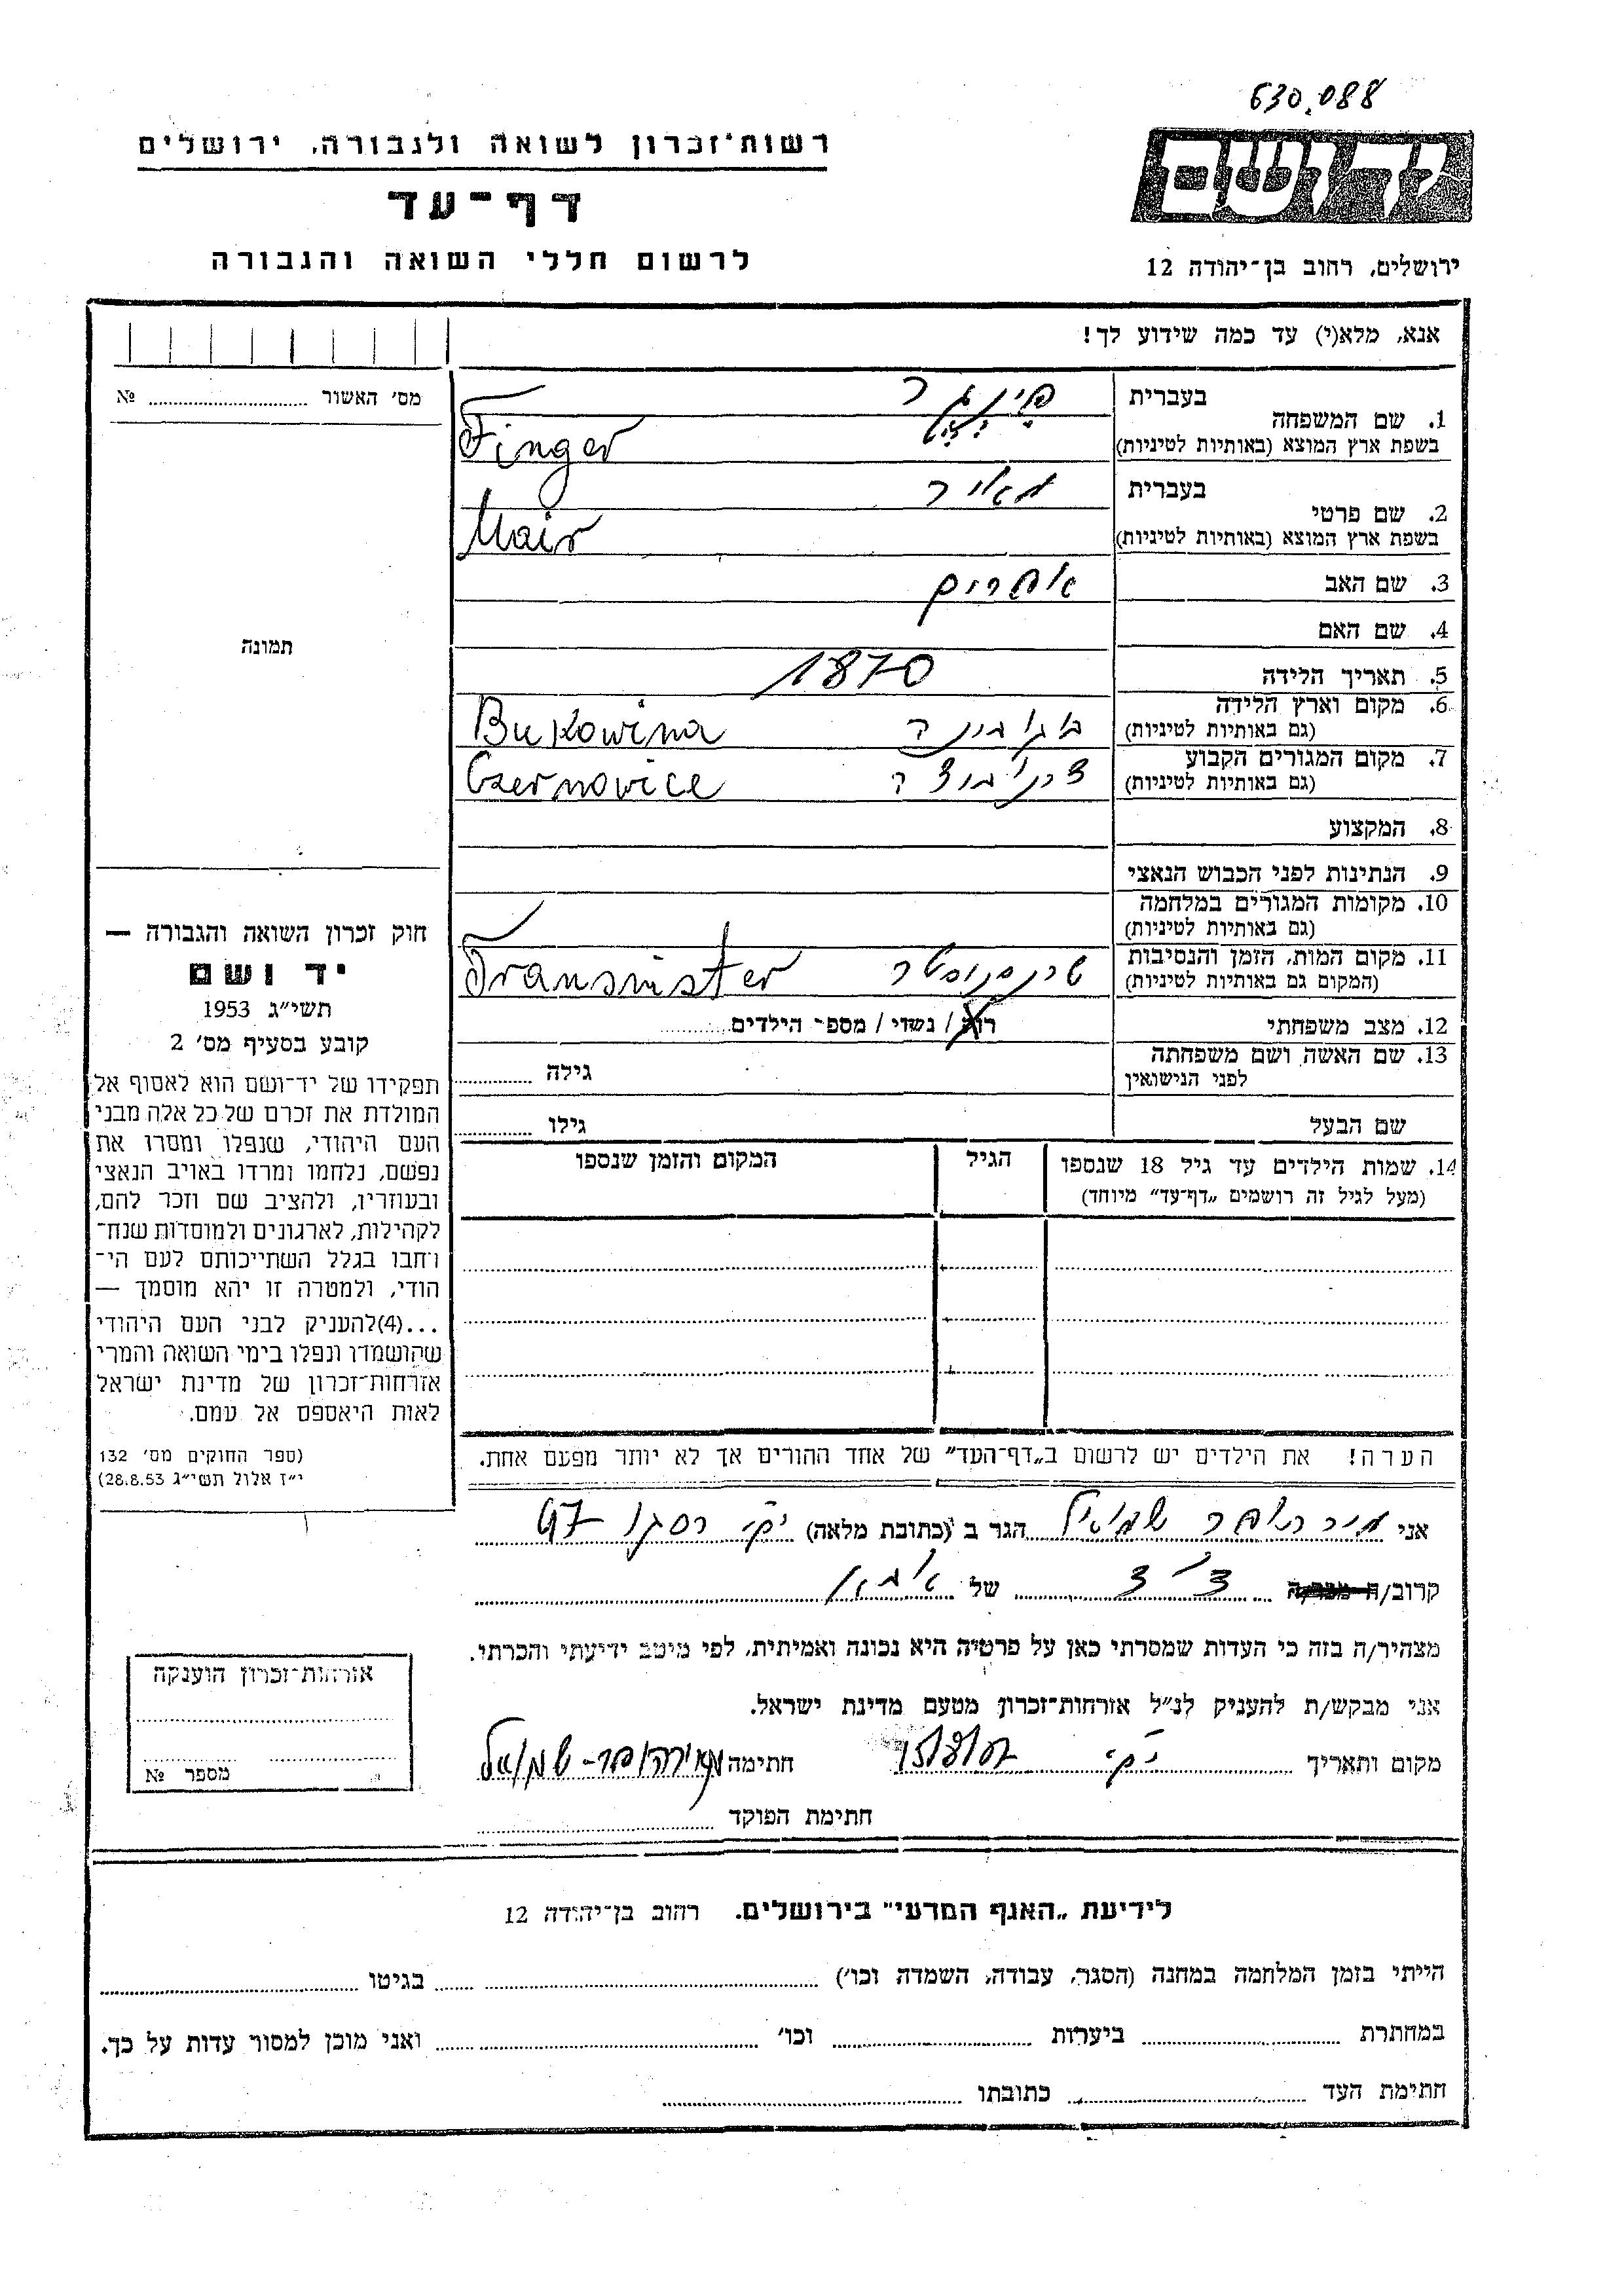 630.088
רשות־זכרון לשואה ולגבורה, ירושלים
דף־עד
לרשום חללי השואה והגבורה
יד ושם
ירושלים, רחוב בן־יהודה 12
אנא, מלא(י) עד כמה שידוע לך!
מס׳ האשור № 
1. שם המשפחה
בעברית פינגר
בשפת ארץ המוצא (באותיות לטיניות) Finger
2. שם פרטי
בעברית מאיר
בשפת ארץ המוצא (באותיות לטיניות) Mair
3. שם האב אפרים
4. שם האם
5. תאריך הלידה 1870
6. מקום וארץ הלידה
(גם באותיות לטיניות) בוקובינה Bukowina
7. מקום המגורים הקבוע
(גם באותיות לטיניות) Czernovice
8. המקצוע
9. הנתינות לפני הכבוש הנאצי
10. מקומות המגורים במלחמה
(גם באותיות לטיניות)
11. מקום המות, הזמן והנסיבות
(המקום גם באותיות לטיניות) טרנסניסטר Transnister
12. מצב משפחתי רוק / נשוי / מספר הילדים
13. שם האשה ושם משפחתה
לפני הנישואין גילה
שם הבעל גילו
14. שמות הילדים עד גיל 18 שנספו
(מעל לגיל זה רושמים „דף־עד״ מיוחד)
הגיל
המקום והזמן שנספו
תמונה
חוק זכרון השואה והגבורה —
יד ושם
תשי״ג 1953
קובע בסעיף מס׳ 2
תפקידו של יד־ושם הוא לאסוף אל
המולדת את זכרם של כל אלה מבני
העם היהודי, שנפלו ומסרו את
נפשם, נלחמו ומרדו באויב הנאצי
ובעוזריו, ולהציב שם וזכר להם,
לקהילות, לארגונים ולמוסדות שנח־
רחבו בגלל השתייכותם לעם הי־
הודי, ולמטרה זו יהא מוסמך —
...(4)להעניק לבני העם היהודי
שהושמדו ונפלו בימי השואה והמרי
אזרחות־זכרון של מדינת ישראל
לאות היאספם אל עמם.
(ספר החוקים מס׳ 132
י״ז אלול תשי״ג 28.8.53)
הערה! את הילדים יש לרשום ב„דף־העד״ של אחד ההורים אך לא יותר מפעם אחת.
אני שמואל הגר ב (כתובת מלאה) 97
קרוב/ה של
מצהיר/ה בזה כי העדות שמסרתי כאן על פרטיה היא נכונה ואמיתית, לפי מיטב ידיעתי והכרתי.
אני מבקש/ת להעניק לנ״ל אזרחות־זכרון מטעם מדינת ישראל.
מקום ותאריך חתימה
חתימת הפוקד
אזרחות־זכרון הוענקה
מספר №
לידיעת „האגף המדעי״ בירושלים. רחוב בן־יהודה 12
הייתי בזמן המלחמה במחנה (הסגר, עבודה, השמדה וכו׳) בגיטו
במחתרת ביערות וכו׳ ואני מוכן למסור עדות על כך.
חתימת העד כתובתו